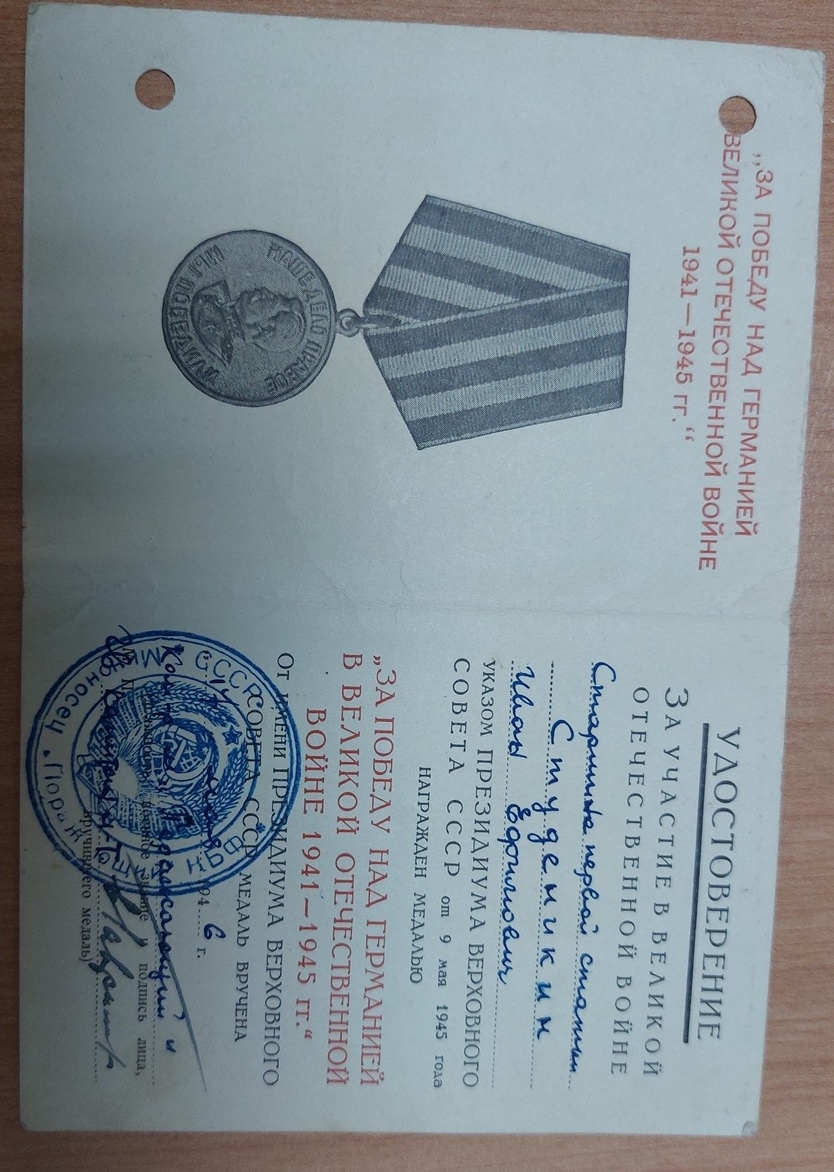 „ЗА ПОБЕДУ НАД ГЕРМАНИЕЙ
ВЕЛИКОЙ ОТЕЧЕСТВЕННОЙ ВОЙНЕ
1941—1945 гг.“
НАШЕ ДЕЛО ПРАВОЕ
МЫ ПОБЕДИЛИ
УДОСТОВЕРЕНИЕ
ЗА УЧАСТИЕ В ВЕЛИКОЙ
ОТЕЧЕСТВЕННОЙ ВОЙНЕ
Старшина первой статьи
Студеникин
Иван Ефимович
УКАЗОМ ПРЕЗИДИУМА ВЕРХОВНОГО
СОВЕТА СССР от 9 мая 1945 года
НАГРАЖДЕН МЕДАЛЬЮ
„ЗА ПОБЕДУ НАД ГЕРМАНИЕЙ
В ВЕЛИКОЙ ОТЕЧЕСТВЕННОЙ
ВОЙНЕ 1941—1945 гг.“
От ИМЕНИ ПРЕЗИДИУМА ВЕРХОВНОГО
СОВЕТА СССР МЕДАЛЬ ВРУЧЕНА
1946 г.
М. П. звание и подпись лица,
вручившего медаль)
СССР
КБФ